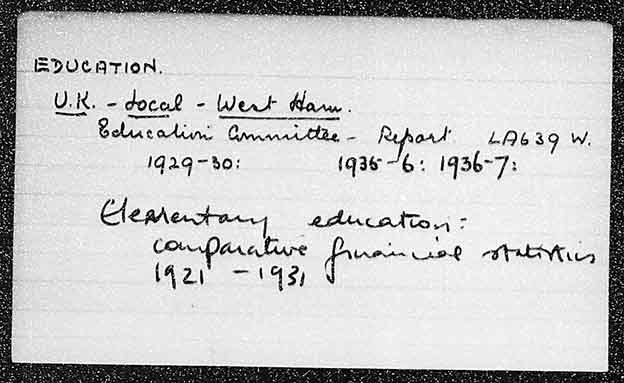 EDUCATION.
U.K. - Local - West Ham.
Education Committee - Report. LA639 W.
1929-30: 1935-6: 1936-7:
Elementary education:
comparative financial statistics
1921 - 1931